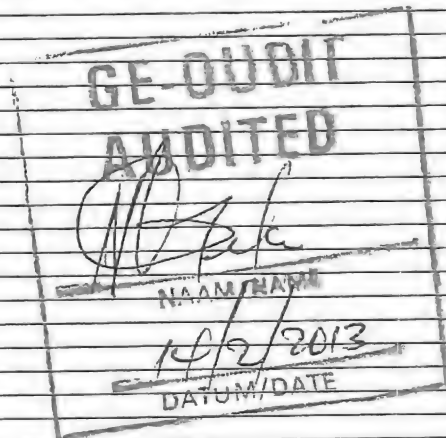 GE-OUDIT
AUDITED
NAAM/NAME
14/2/2013
DATUM/DATE